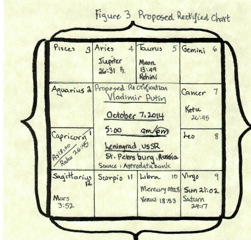 Figure 3 Proposed Rectified Chart
Pisces 3
Aries 4
Taurus 5
Gemini 6
Jupiter
26:31 R
Moon
Rohini
Aquarius 2
Proposed Rectification
Vladimir Putin
October 7, 2014
5:00 am/pm
Leningrad USSR
St. Petersburg, Russia
Source: Astrodatabank
Cancer 7
Ketu
26:45
Capricorn 1
Rahu 26:45
Leo 8
Sagittarius 12
Mars
3:52
Scorpio 11
Libra 10
Mercury
Venus 18:53
Virgo 9
Sun 21:02
Saturn